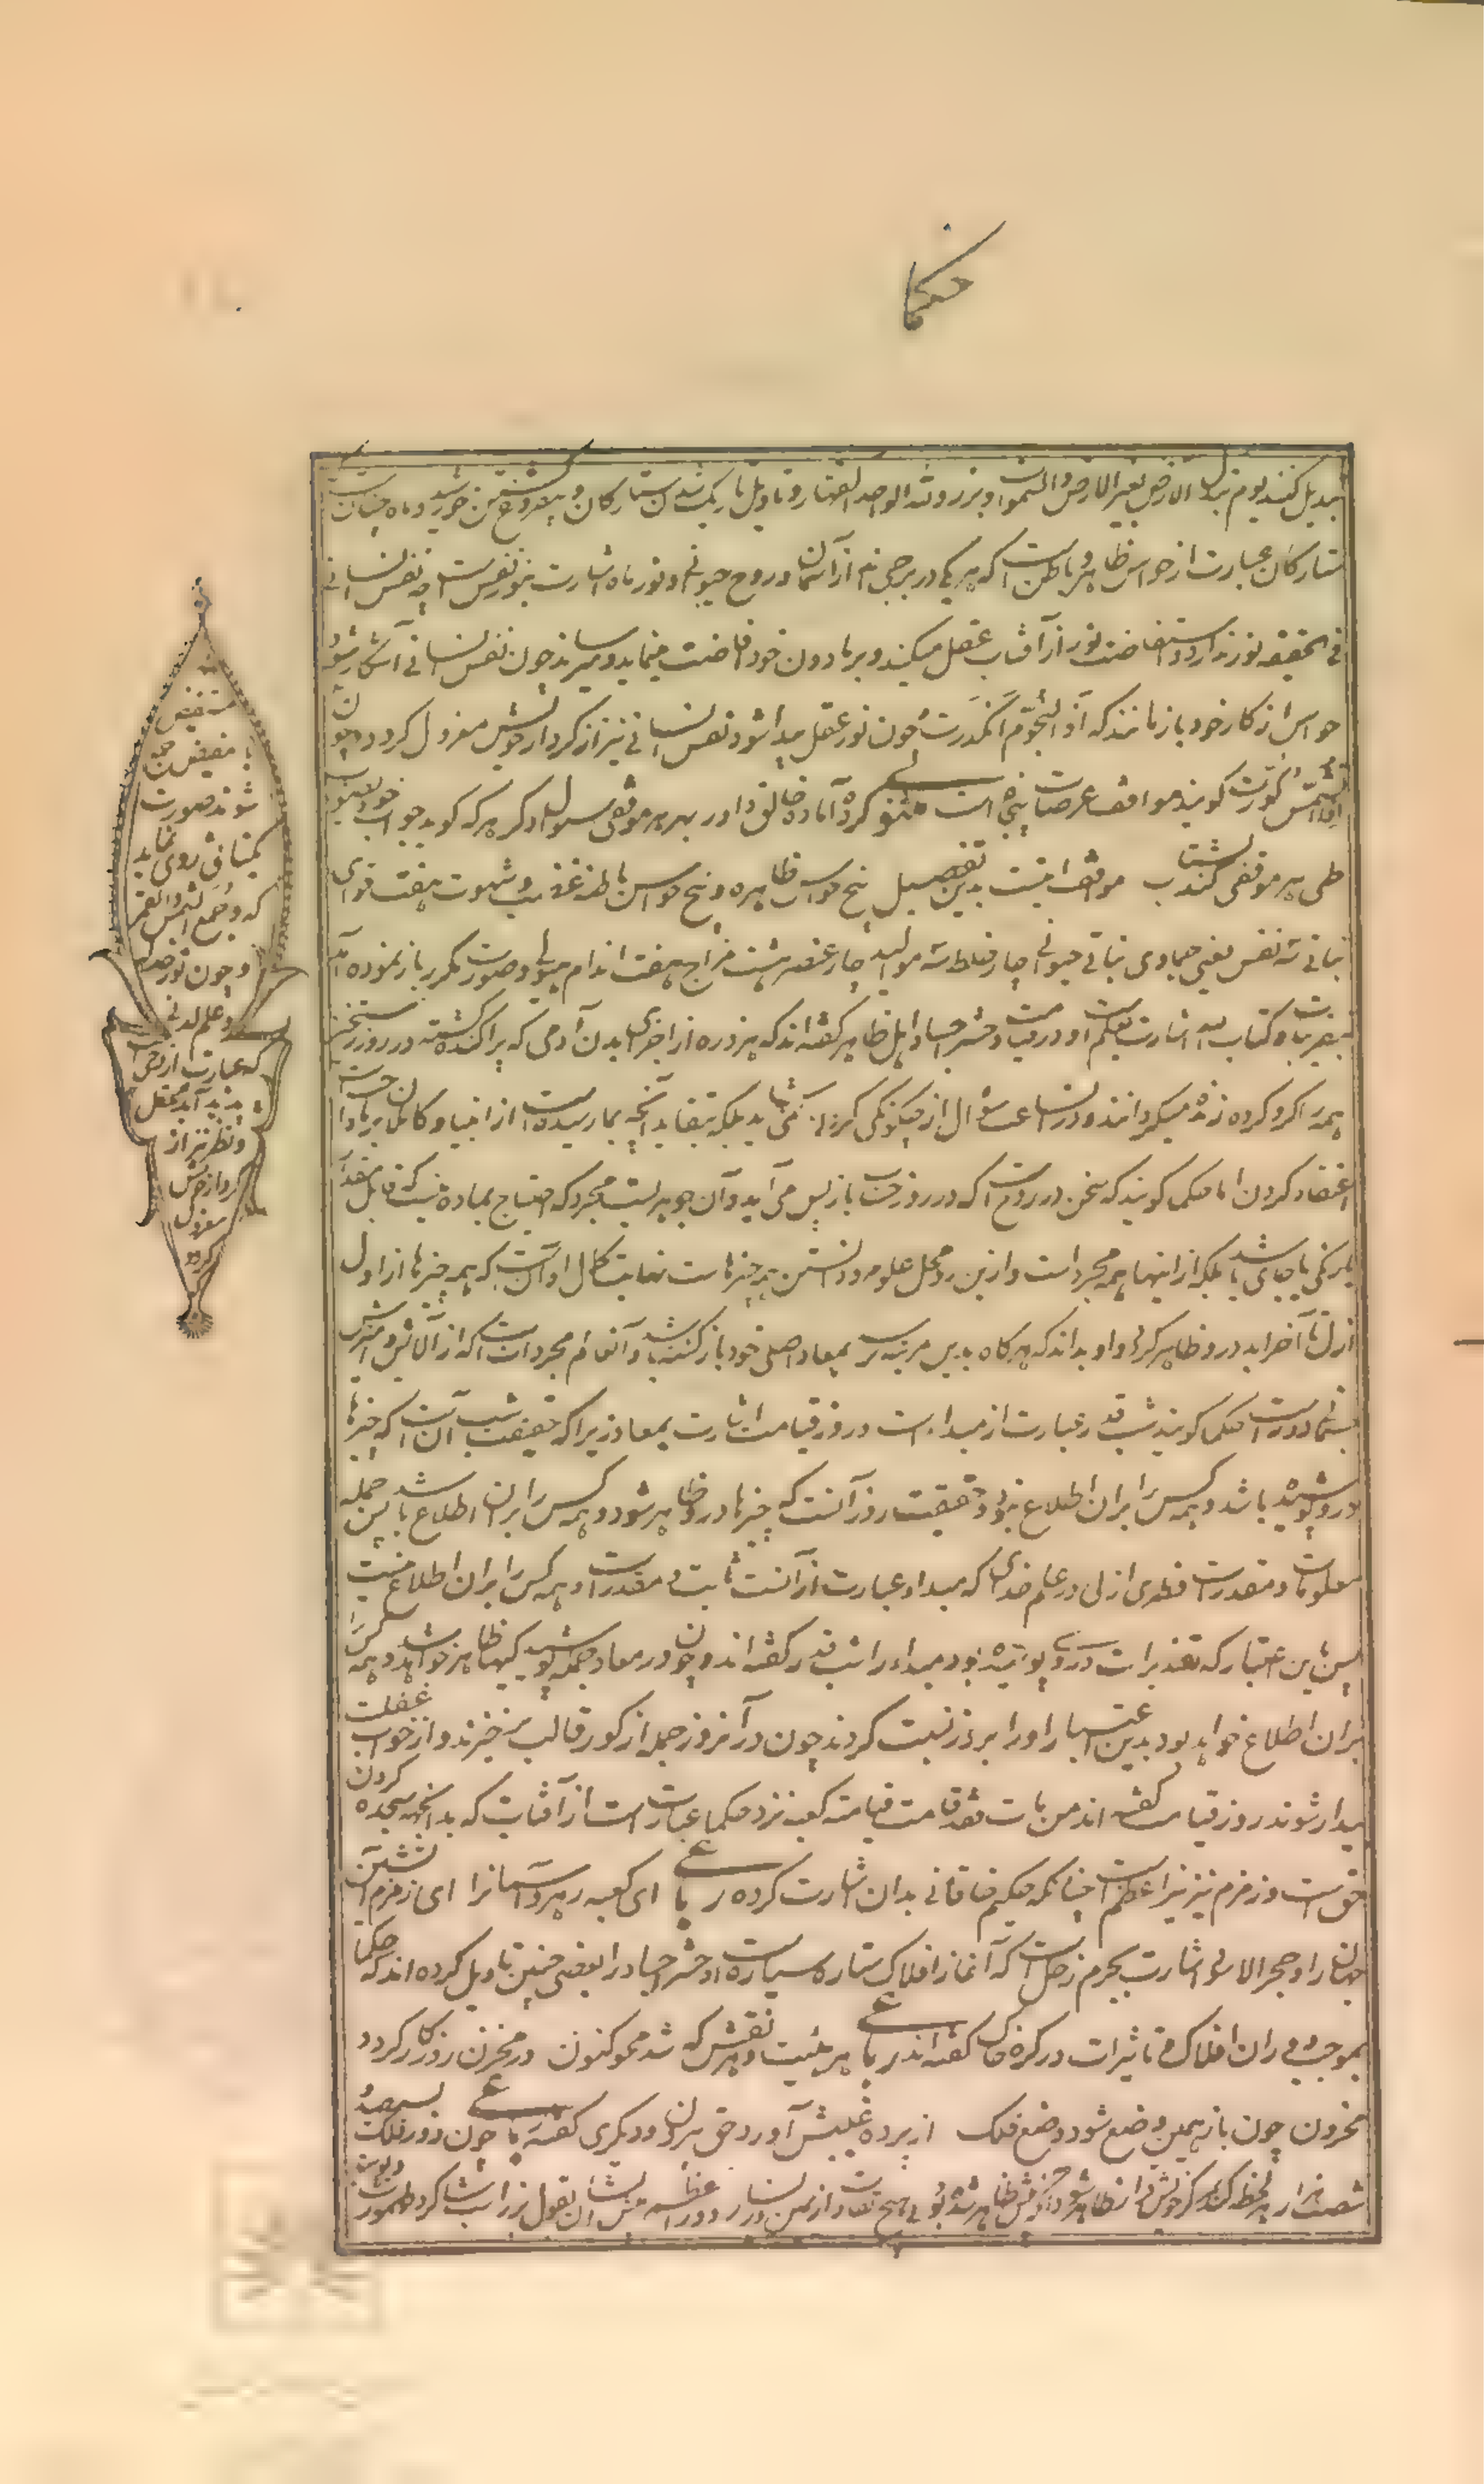 حکما
تبدیل کنند یوم تبدل الارض بغیر الارض والسموات و برزوا لله الواحد القهار و تاویل تاریک شدن ستارگان و بیفروغ گشتن خورشید و ماه چنان است
ستارگان عبارت از حواس ظاهر و باطن است که هر یکی در برجی اند از آسمان و روح حیوانی و نور ماه اشارت بنور نفس است چه نفس انسانی
فی الحقیقه نور ندارد و استفاضت نور از آفتاب عقل میکند و بر مادون خود افاضت مینماید و میرساند چون نفس انسانی آشکار شود
حواس از کار خود باز مانند که اذا النجوم انکدرت و چون نور عقل پیدا شود نفس انسانی نیز از کردار خویش معزول گردد و چون
اذا الشمس کورت گویند مواقف عرصات پنجاه است مثنوی کرده آماده خالق داور بهر هر موقفی سوال دگر هر که گوید جواب خود بصواب
طی هر موقفی کند بشتاب موقف اینست بدین تفصیل پنج حواس ظاهره و پنج حواس باطنه غضب و شهوت هفت قوای
نباتی سه نفس یعنی جمادی نباتی حیوانی چار خلط سه موالید چار عنصر هشت مزاج هفت اندام هیولی و صورت مکرر باز نموده آمد
و کتاب الله اشارت بعلم او در قیامت و حشر اجساد اهل ظاهر گفته اند که هر ذره از اجزای بدن آدمی که پراکنده گشته در روز رستخیز
همه را گرد کرده زنده میگردانند و در اینساعت سوال از چگونگی کردن نمی شاید بلکه بتقلید آنچه بما رسیده است از انبیا و کاملان بر ما واجبست
اعتقاد کردن اما حکما گویند که سخن در روح است که در روز حساب باز پس می آید و آن جوهریست مجرد که احتیاج بماده نیست که قابل مقدار
یا رنگی یا جای باشد بلکه از اینها همه مجرد است و ازین رو محل علوم و دانستن همه چیزهاست نهایت کمال او آنست که همه چیزها از اول
ازل تا آخر ابد در و ظاهر گردد و او بداند که هر گاه بدین مرتبه رسد بمعاد اصلی خود بازگشته باشد و آن عالم مجردات است که از آلایش و آمیزش
جسمانی دور است حکما گویند شب قدر عبارت از مبداء است و روز قیامت اشارت بمعاد زیرا که حقیقت شب آنست که چیزها
درو پوشیده باشد و همه کس را بران اطلاع نبود و حقیقت روز آنست که چیزها درو ظاهر شود و همه کس را بران اطلاع باشد پس جمله
معلومات و مقدرات فطری ازلی در علم خدای که مبداء عبارت از آنست ثابت و مقدر است و همه کس را بران اطلاع نیست
پس باین اعتبار که تقدیرات درو پوشیده بود مبداء را شب قدر گفته اند و چون در معاد جمله پوشیدگیها ظاهر خواهد شد و همه کس را
بران اطلاع خواهد بود بدین اعتبار او را بروز نسبت کردند چون در آنروز جمله از گور قالب برخیزند و از خواب غفلت
بیدار شوند روز قیامت گفته اند من مات فقد قامت قیامته کعبه نزد حکما عبارت است از آفتاب که بدانجهه سجده کردن
حق است و زمزم نیز نیر اعظم است چنانکه حکیم خاقانی بدان اشارت کرده رباعی ای کعبه رهرو آسمانرا ای زمزم آتشین
جهانرا و حجر الاسود اشارت بجرم زحل است که آغاز افلاک ستاره سیاره است و حشر اجساد را بعضی چنین تاویل کرده اند که حکما
بموجب دوران افلاک و تاثیرات در کره خاک گفته اند رباعی هر هیئت و هر نقش که شد محو کنون در مخزن روزگار گردد
مخزون چون باز همین وضع شود وضع فلک از پرده غیبش آورد حق بیرون و دیگری گفته رباعی چون دور فلک بسیصد و
شصت هزار هر لحظه کند مرکز خویش ظاهر شود
مستفیض
با مفیض جمع
شوند صورت
یکتائی روی نماید
که و جمع الشمس والقمر
و چون نور خدا
و علم لدنی
که عبارت از وحی است
پدید آید عقل
و نظر نیز از
کردار خویش
معزول
گردد